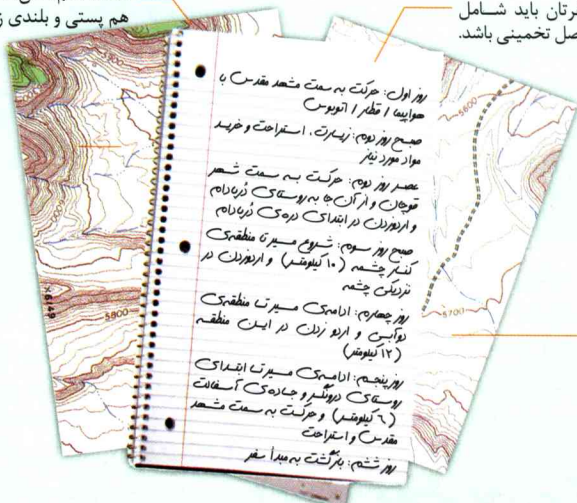 هم پستی و بلندی ز
رتان باید شامل
صل تخمینی باشد.
روز اول: حرکت به سمت مشهد مقدس با
هواپیما / قطار / اتوبوس
صبح روز دوم: زیارت، استراحت و خرید
مواد مورد نیاز
عصر روز دوم: حرکت به سمت شهر
قوچان و از آن جا به روستای دُربادام
و اردوزدن در ابتدای دره‌ی دُربادام
صبح روز سوم: شروع مسیر تا منطقه‌ی
کنار چشمه (۱۰ کیلومتر) و اردوزدن در
نزدیکی چشمه
روز چهارم: ادامه‌ی مسیر تا منطقه‌ی
دوآبی و اردو زدن در این منطقه
(۱۲ کیلومتر)
روز پنجم: ادامه‌ی مسیر تا ابتدای
روستای درونگر و جاده‌ی آسفالت
(۶ کیلومتر) و حرکت به سمت مشهد
مقدس و استراحت
روز ششم: بازگشت به مبدأ سفر
5600
5700
5800
6149×